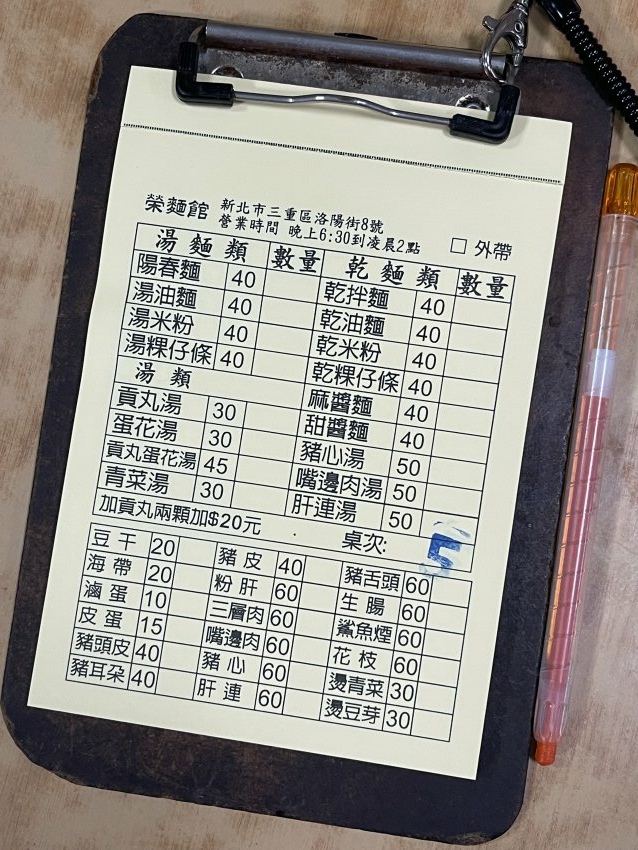 榮麵館 新北市三重區洛陽街8號
營業時間 晚上6:30到凌晨2點 □ 外帶
湯麵類 數量 乾麵類 數量
陽春麵 40 乾拌麵 40
湯油麵 40 乾油麵 40
湯米粉 40 乾米粉 40
湯粿仔條 40 乾粿仔條 40
湯類 麻醬麵 40
貢丸湯 30 甜醬麵 40
蛋花湯 30 豬心湯 50
貢丸蛋花湯 45 嘴邊肉湯 50
青菜湯 30 肝連湯 50
加貢丸兩顆加$20元 桌次: 5
豆干 20 豬皮 40 豬舌頭 60
海帶 20 粉肝 60 生腸 60
滷蛋 10 三層肉 60 鯊魚煙 60
皮蛋 15 嘴邊肉 60 花枝 60
豬頭皮 40 豬心 60 燙青菜 30
豬耳朵 40 肝連 60 燙豆芽 30